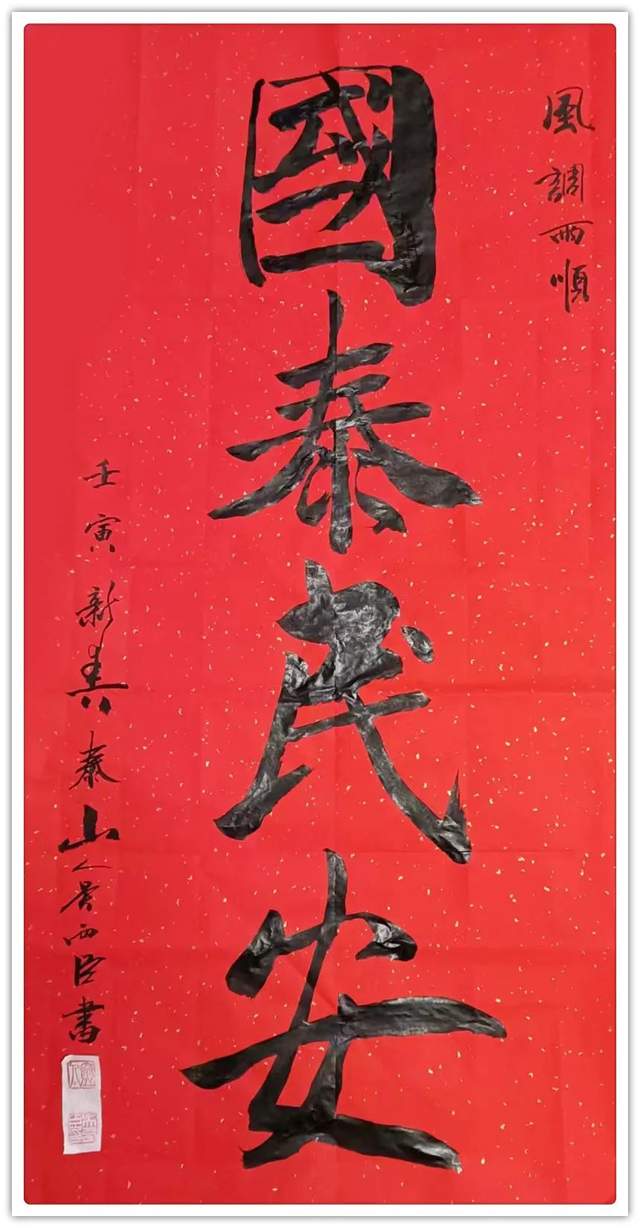 風調雨順
國泰民安
壬寅新春泰山人
臣書